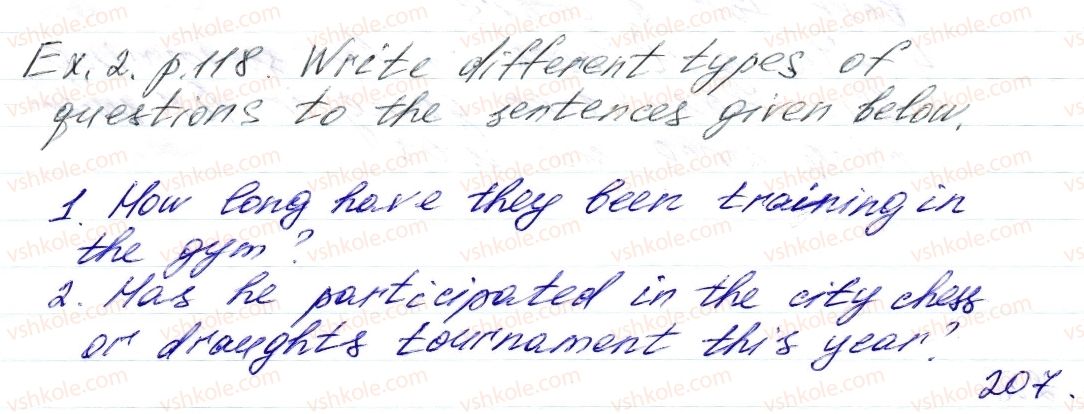 Ex. 2. p. 118. Write different types of
questions to the sentences given below.
1. How long have they been training in
the gym?
2. Has he participated in the city chess
or draughts tournament this year?
207.